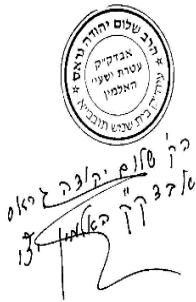 הרב שלום יהודה גראס
אבדק״ק
עטרת ישעי׳
האלמין
עיה״ק בית שמש תובב״א
הק׳ שלום יהודה גראס
אבדק״ק האלמין